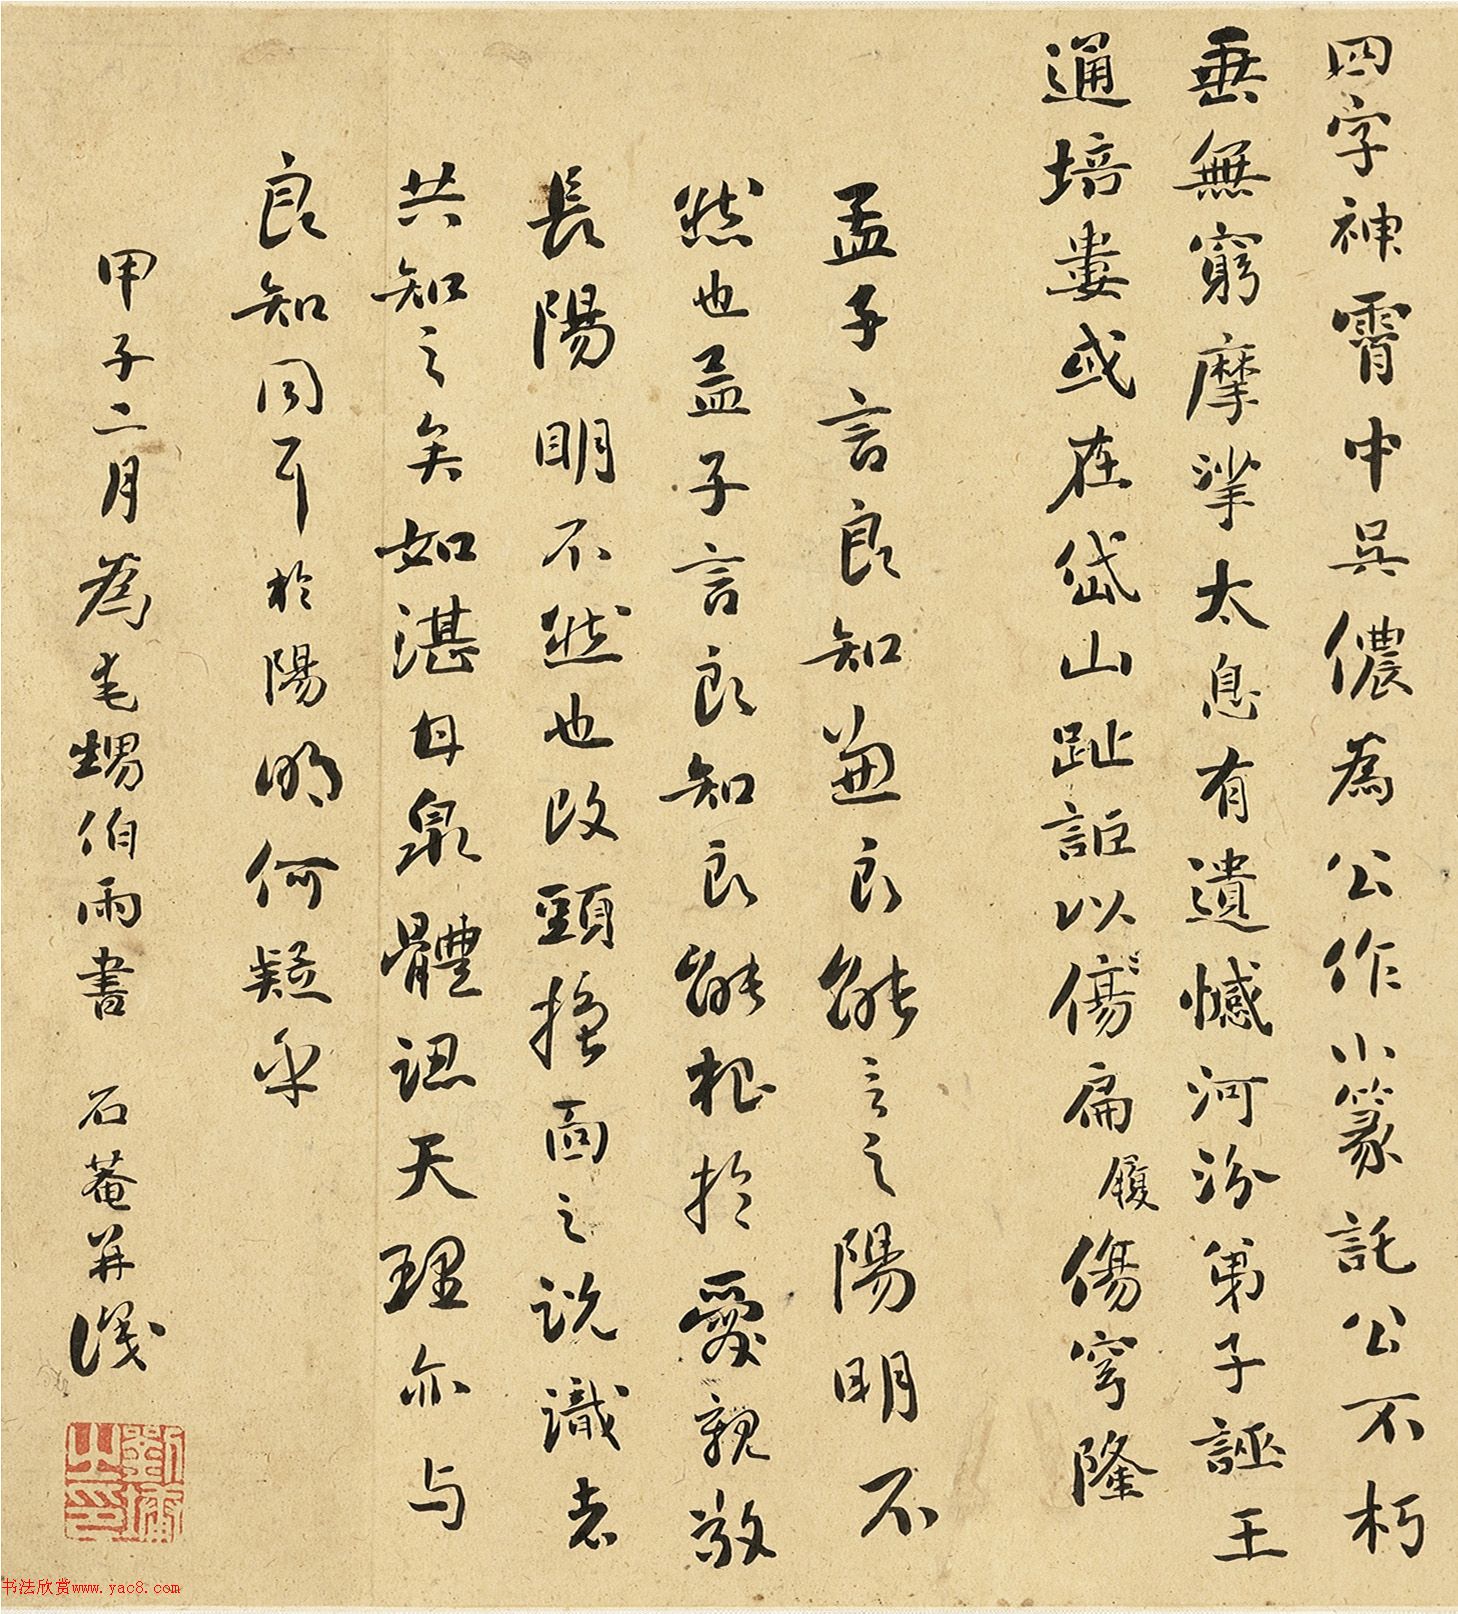 四字神霄中吳儂為公作小篆託公不朽
垂無窮摩挲太息有遺憾河汾弟子誣王
通培婁或在岱山趾詎以傷扁履傷穹隆
孟子言良知兼良能言之陽明不
然也孟子言良知良能根於愛親敬
長陽明不然也改頭換面之說識者
共知之矣如湛甘泉體認天理亦与
良知同耳於陽明何疑乎
甲子二月為毛甥伯雨書 石菴并識
劉墉之印
书法欣赏www.yac8.com